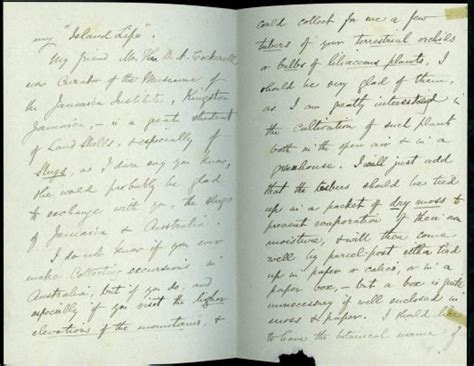 my "Island Life".
My friend Mr. Theo. D. A. Cockerell
now Curator of the Museum of
the Jamaica Institute, Kingston
Jamaica, – is a great student
of Land Shells, & especially of
Slugs, as I dare say you know,
& he would probably be glad
to exchange with you, the slugs
of Jamaica & Australia.
I do not know if you ever
make Collecting excursions in
Australia, but if you do, and
especially if you visit the higher
elevations of the mountains, &
could collect for me a few
tubers of your terrestrial orchids
or bulbs of liliaceous plants, I
should be very glad of them,
as I am greatly interested in
the cultivation of such plants
both in the open air & in a
greenhouse. I will just add
that the tubers should be tied
up in a packet of dry moss to
prevent evaporation of their own
moisture, & will then come
well by parcel-post either tied
up in paper or calico, or in a
paper box, – but a box is quite
unnecessary if well enclosed in
moss & paper. I should like
to have the botanical name of